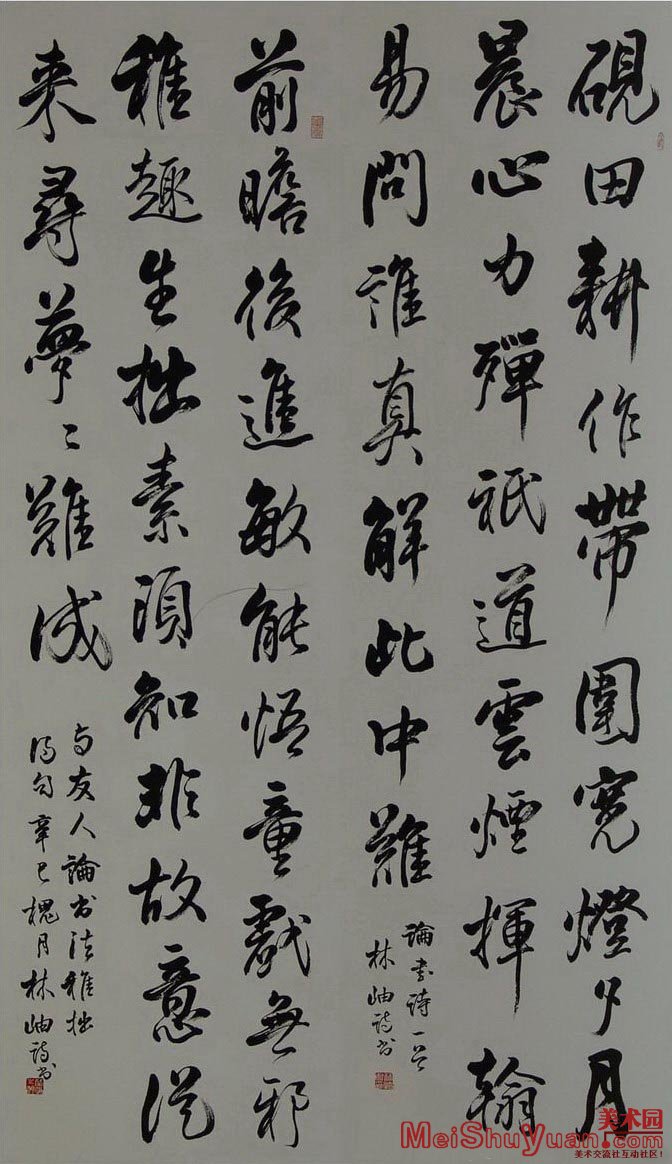 硯田耕作帶圍寬燈夕月
晨心力殫祇道雲煙揮翰
易問誰真解此中難
論書詩一首
林岫詩書
前瞻後進敏能悟童戲無邪
稚趣生拙素須知非故意從
来尋夢〻難成
与友人論書法稚拙
得句辛巳槐月林岫詩書
美术园
MeiShuYuan.com
美术交流社互动社区!